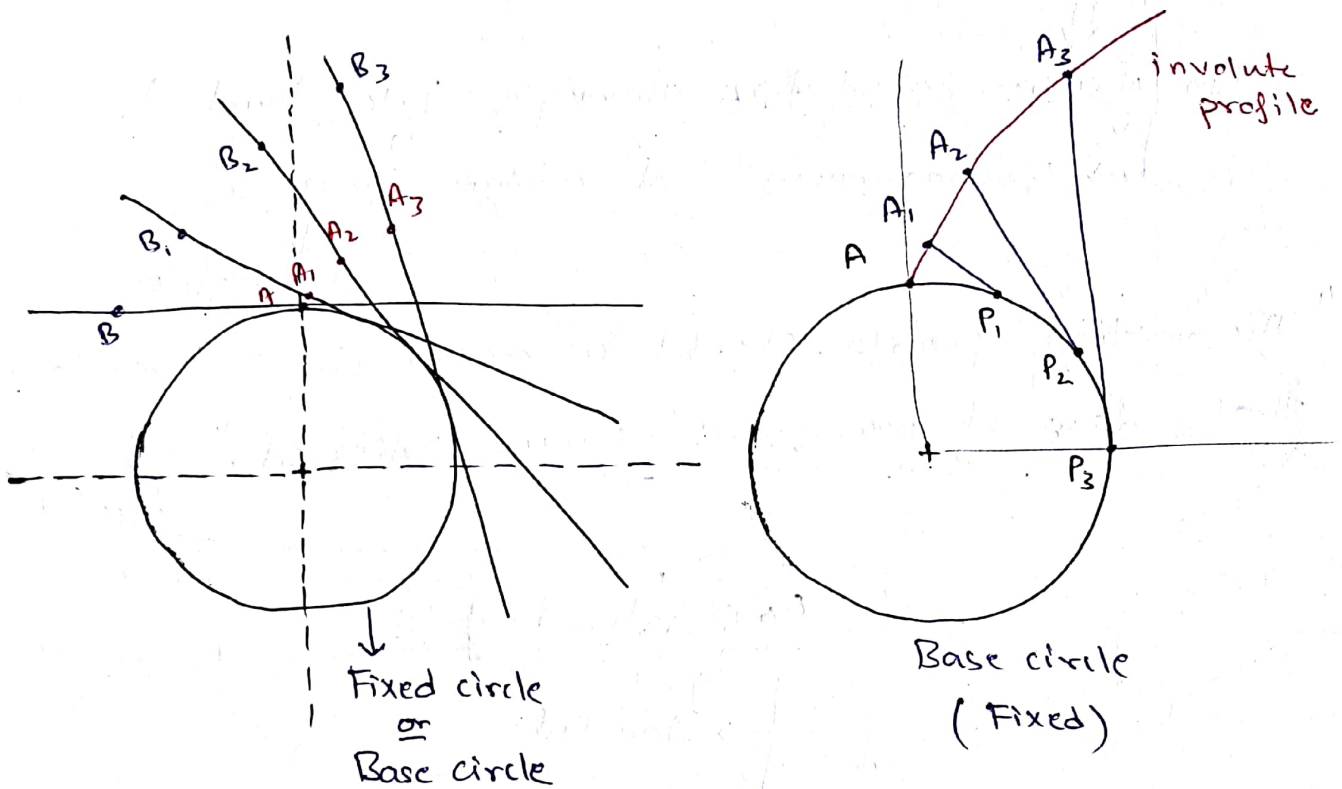 B₃
B₂
A₃
A₂
B₁
A₁
A
B
Fixed circle
or
Base circle
A₃
involute
profile
A₂
A₁
A
P₁
P₂
P₃
Base circle
(Fixed)